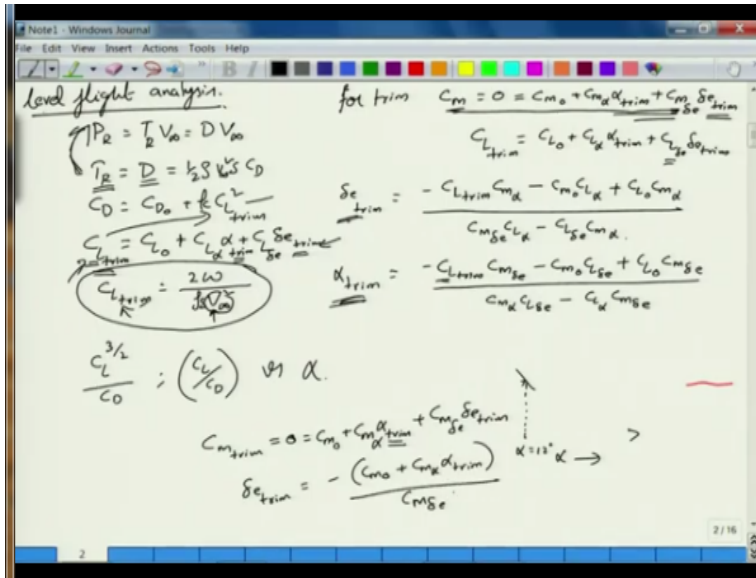 Note1 - Windows Journal
File Edit View Insert Actions Tools Help
level flight analysis.
P_R = T_R V_∞ = D V_∞
T_R = D = ½ ρ V_∞² S C_D
C_D = C_D₀ + k C_L²_trim
C_L_trim = C_L₀ + C_Lα α_trim + C_Lδe δe_trim
C_L_trim = 2W / ρS V_∞²
for trim C_m = 0 = C_m₀ + C_mα α_trim + C_mδe δe_trim
C_L_trim = C_L₀ + C_Lα α_trim + C_Lδe δe_trim
δe_trim = (- C_L_trim C_mα - C_m₀ C_Lα + C_L₀ C_mα) / (C_mδe C_Lα - C_Lδe C_mα)
α_trim = (- C_L_trim C_mδe - C_m₀ C_Lδe + C_L₀ C_mδe) / (C_mα C_Lδe - C_Lα C_mδe)
C_L^3/2 / C_D ; (C_L/C_D) vs α.
C_m_trim = 0 = C_m₀ + C_mα α_trim + C_mδe δe_trim
δe_trim = - (C_m₀ + C_mα α_trim) / C_mδe
α=12° α →
2/16
2